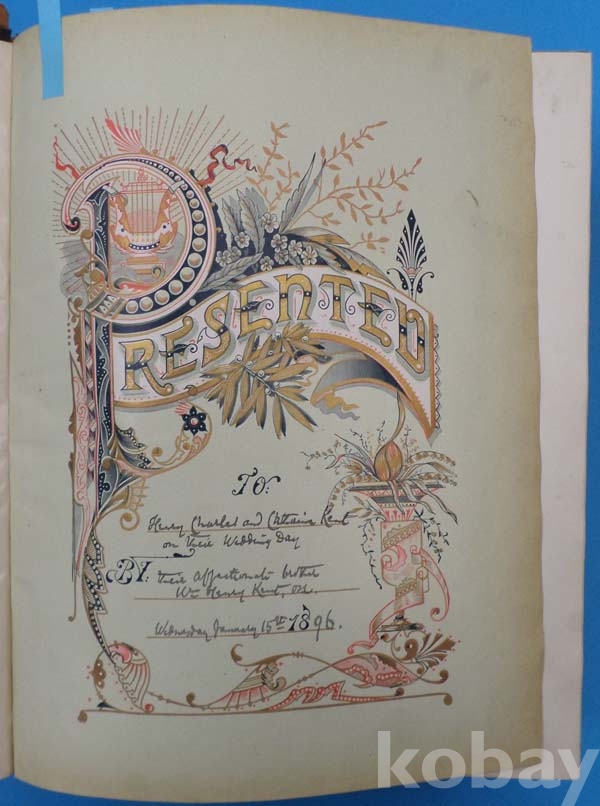 PRESENTED
TO:
Henry Charles and Kent
on their Wedding Day
BY: their affectionate brother
Wm Henry Kent,
Wednesday January 15th 1896.
kobay